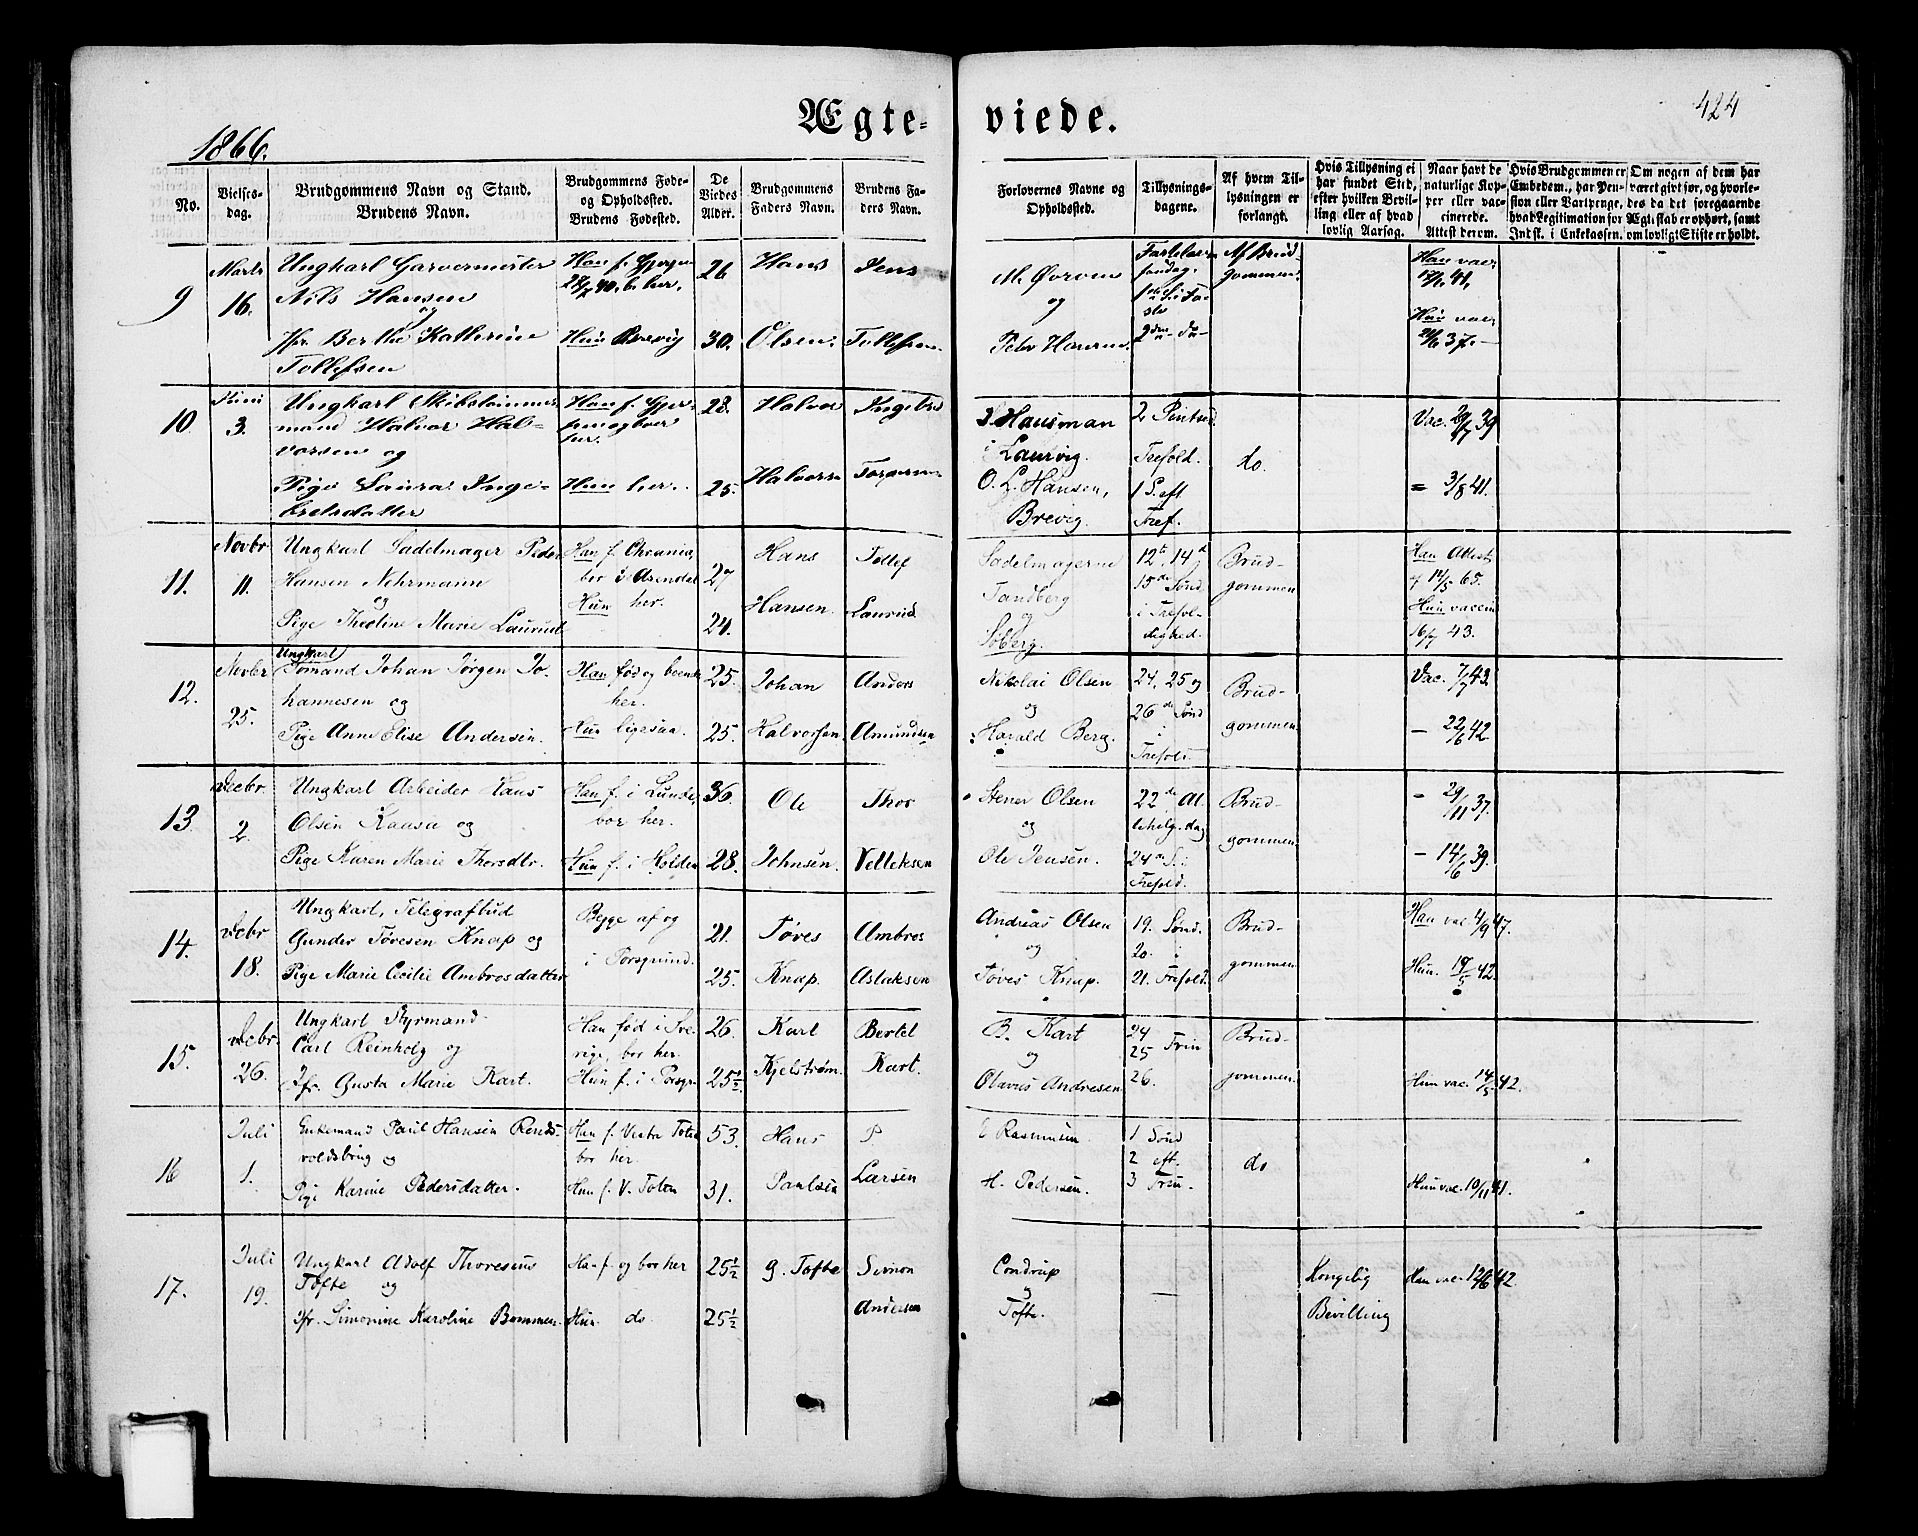 Ægte-viede.
424
1866.
No.
Vielses-
dag.
Brudgommens Navn og Stand.
Brudens Navn.
Brudgommens Føde-
og Opholdssted.
Brudens Fødested.
De
Viedes
Alder.
Brudgommens
Faders Navn.
Brudens Fa-
ders Navn.
Forlovernes Navne og
Opholdssted.
Tillysnings-
dagene.
Af hvem Til-
lysningen er
forlangt.
Hvis Tillysning ei
har fundet Sted,
efter hvilken Bevil-
ling eller af hvad
lovlig Aarsag.
Naar havt de
naturlige Kop-
per eller vac-
cinerede.
Attest derom.
Hvis Brudgommen er
Embedsm., har Pen-
sion eller Vartpenge,
hvad Legitimation for
Indsk. i Enkekassen.
Om nogen af dem har
været gift før, og hvorle-
des da det foregaaende
Ægteskab er ophørt, samt
om lovligt Skifte er holdt.
9
Marts
16.
Ungkarl Garvermester
Nils Hansen
og
Jfr. Berthe Katherine
Tollefsen
Han f.
Hun
26
30.
Hans
Olsen.
Jens
Tollefsen
M.
og
Peter Hansen.
Af Brud
gommen.
Han vac.
Hun vac.
10
Juni
3.
Ungkarl Skibstømmer
mand Halvor Hal-
vorsen og
Pige Laura Inge-
bretsdatter
Hun her.
28.
25.
Halvor
Halvorsen
Hausman
i Laurvig.
O. L. Hansen,
Brevig.
Trefold.
1 S. eft
Tref.
do.
= 3/8 41.
11.
Novbr
11.
Ungkarl Sadelmager Peder
Hansen Nehrmann
og
Pige Theoline Marie Laurud
Han f. Chrania,
bor i Arendal
Hun her.
27
24.
Hans
Hansen.
Tollef
Laurud
Sadelmagerne
Tandberg
og
Solberg.
12te, 14d
15de Sønd
i Trefol-
dighed.
Brud-
gommen
Han Attest
af 14/5 65.
Hun vaccin
16/7 43.
12.
Novbr
25.
Ungkarl
Sømand Johan Jørgen Jo-
hannesen og
Pige Anne Elise Andersen.
Han fød og boende
her.
Hun ligesaa.
25.
25.
Johan
Halvorsen
Anders
Amundsen
Nikolai Olsen
og
Harald Berg.
24, 25 og
26de Sønd
i
Trefold.
Brud-
gommen
Vac. 7/7 43.
- 22/6 42
13
Decbr.
2.
Ungkarl Arbeider Hans
Olsen Kaasa og
Pige Karen Marie Thorsdtr.
Han f. i Lunde,
bor her.
Hun f. i Holden
36.
28.
Ole
Johnsen.
Thor
Velleksen
Stener Olsen
og
Ole Jensen.
22de Al.
lehelg. dag
24de S. i
Trefold.
Brud-
gommen
- 29/11 37.
- 14/6 39.
14.
Decbr
18.
Ungkarl, Telegrafbud
Gunder Tøresen Knap og
Pige Marie Cecilie Ambrosdatter
Begge af og
i Porsgrund.
21.
25.
Tøres
Knap.
Ambros
Aslaksen
Andreas Olsen
og
Tøres Knap.
19. Sønd.
20. i
21. Trefold.
Brud-
gommen
Han vac. 4/9 47.
Hun. 19/5 42.
15.
Decbr
26.
Ungkarl Styrmand
Carl Reinholg og
Jfr. Gusta Marie Kart.
Han fød i Sve
rige, bor her.
Hun f. i Porsgr.
26.
25½
Karl
Kjelstrøm.
Bertel
Kart.
B. Kart
og
Olavus Andresen
24
25 Trin
26.
Brud-
gommen.
Hun vac. 14/5 42.
16
Juli
1.
Enkemand Paul Hansen Rends-
voldsbrug og
Pige Karine Pedersdatter.
Han f. Vestre Toten
bor her.
Hun f. V. Toten
53.
31.
Hans
Paulsen
P
Larsen
Rasmusen
H. Pedersen.
1 Sønd
2 eft.
3 Trin.
do
Hun vac. 10/11 41.
17.
Juli
19.
Ungkarl Adolf Thoresius
Tofte og
Jfr. Simonine Karoline Bommen.
Han f. og bor her
Hun do
25½
25½
G. Tofte
Simon
Andersen
Condrup
og
Tofte.
—
Kongelig
Bevilling
Han vac. 12/6 42.